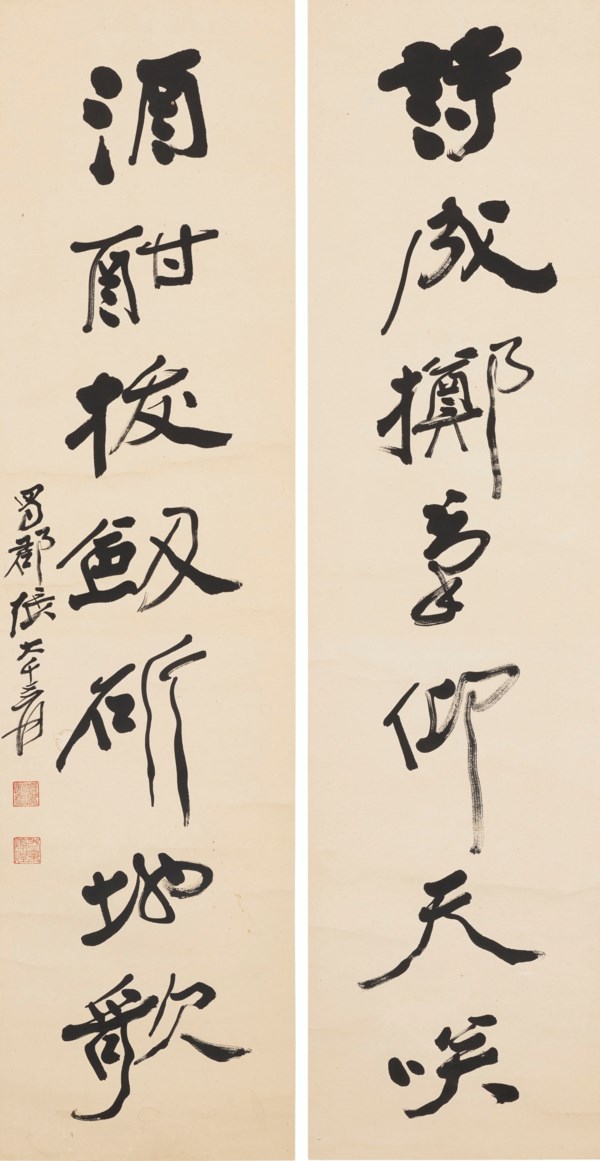 詩成擲筆仰天咲
酒酣拔劒斫地歌
蜀郡張大千爰